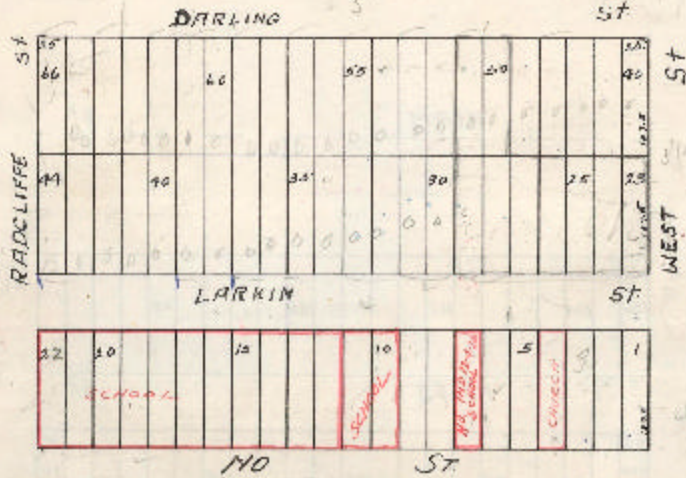 DARLING St.
St
RADCLIFFE
St
WEST
35 35
66 60 55 50 40
107.5
44 40 35 30 25 23
107.5
LARKIN St.
22 20 15 10 5 1
SCHOOL
SCHOOL
SCHOOL
CHURCH
NO St.